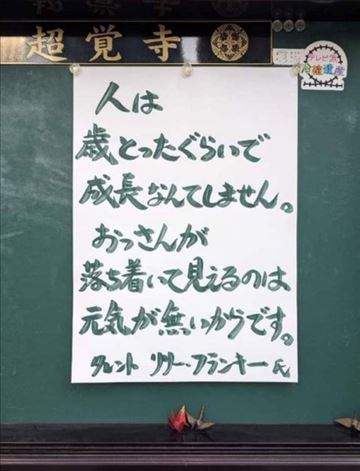 超覚寺
人は
歳とったぐらいで
成長なんてしません。
おっさんが
落ち着いて見えるのは
元気が無いからです。
タレント リリー・フランキー氏